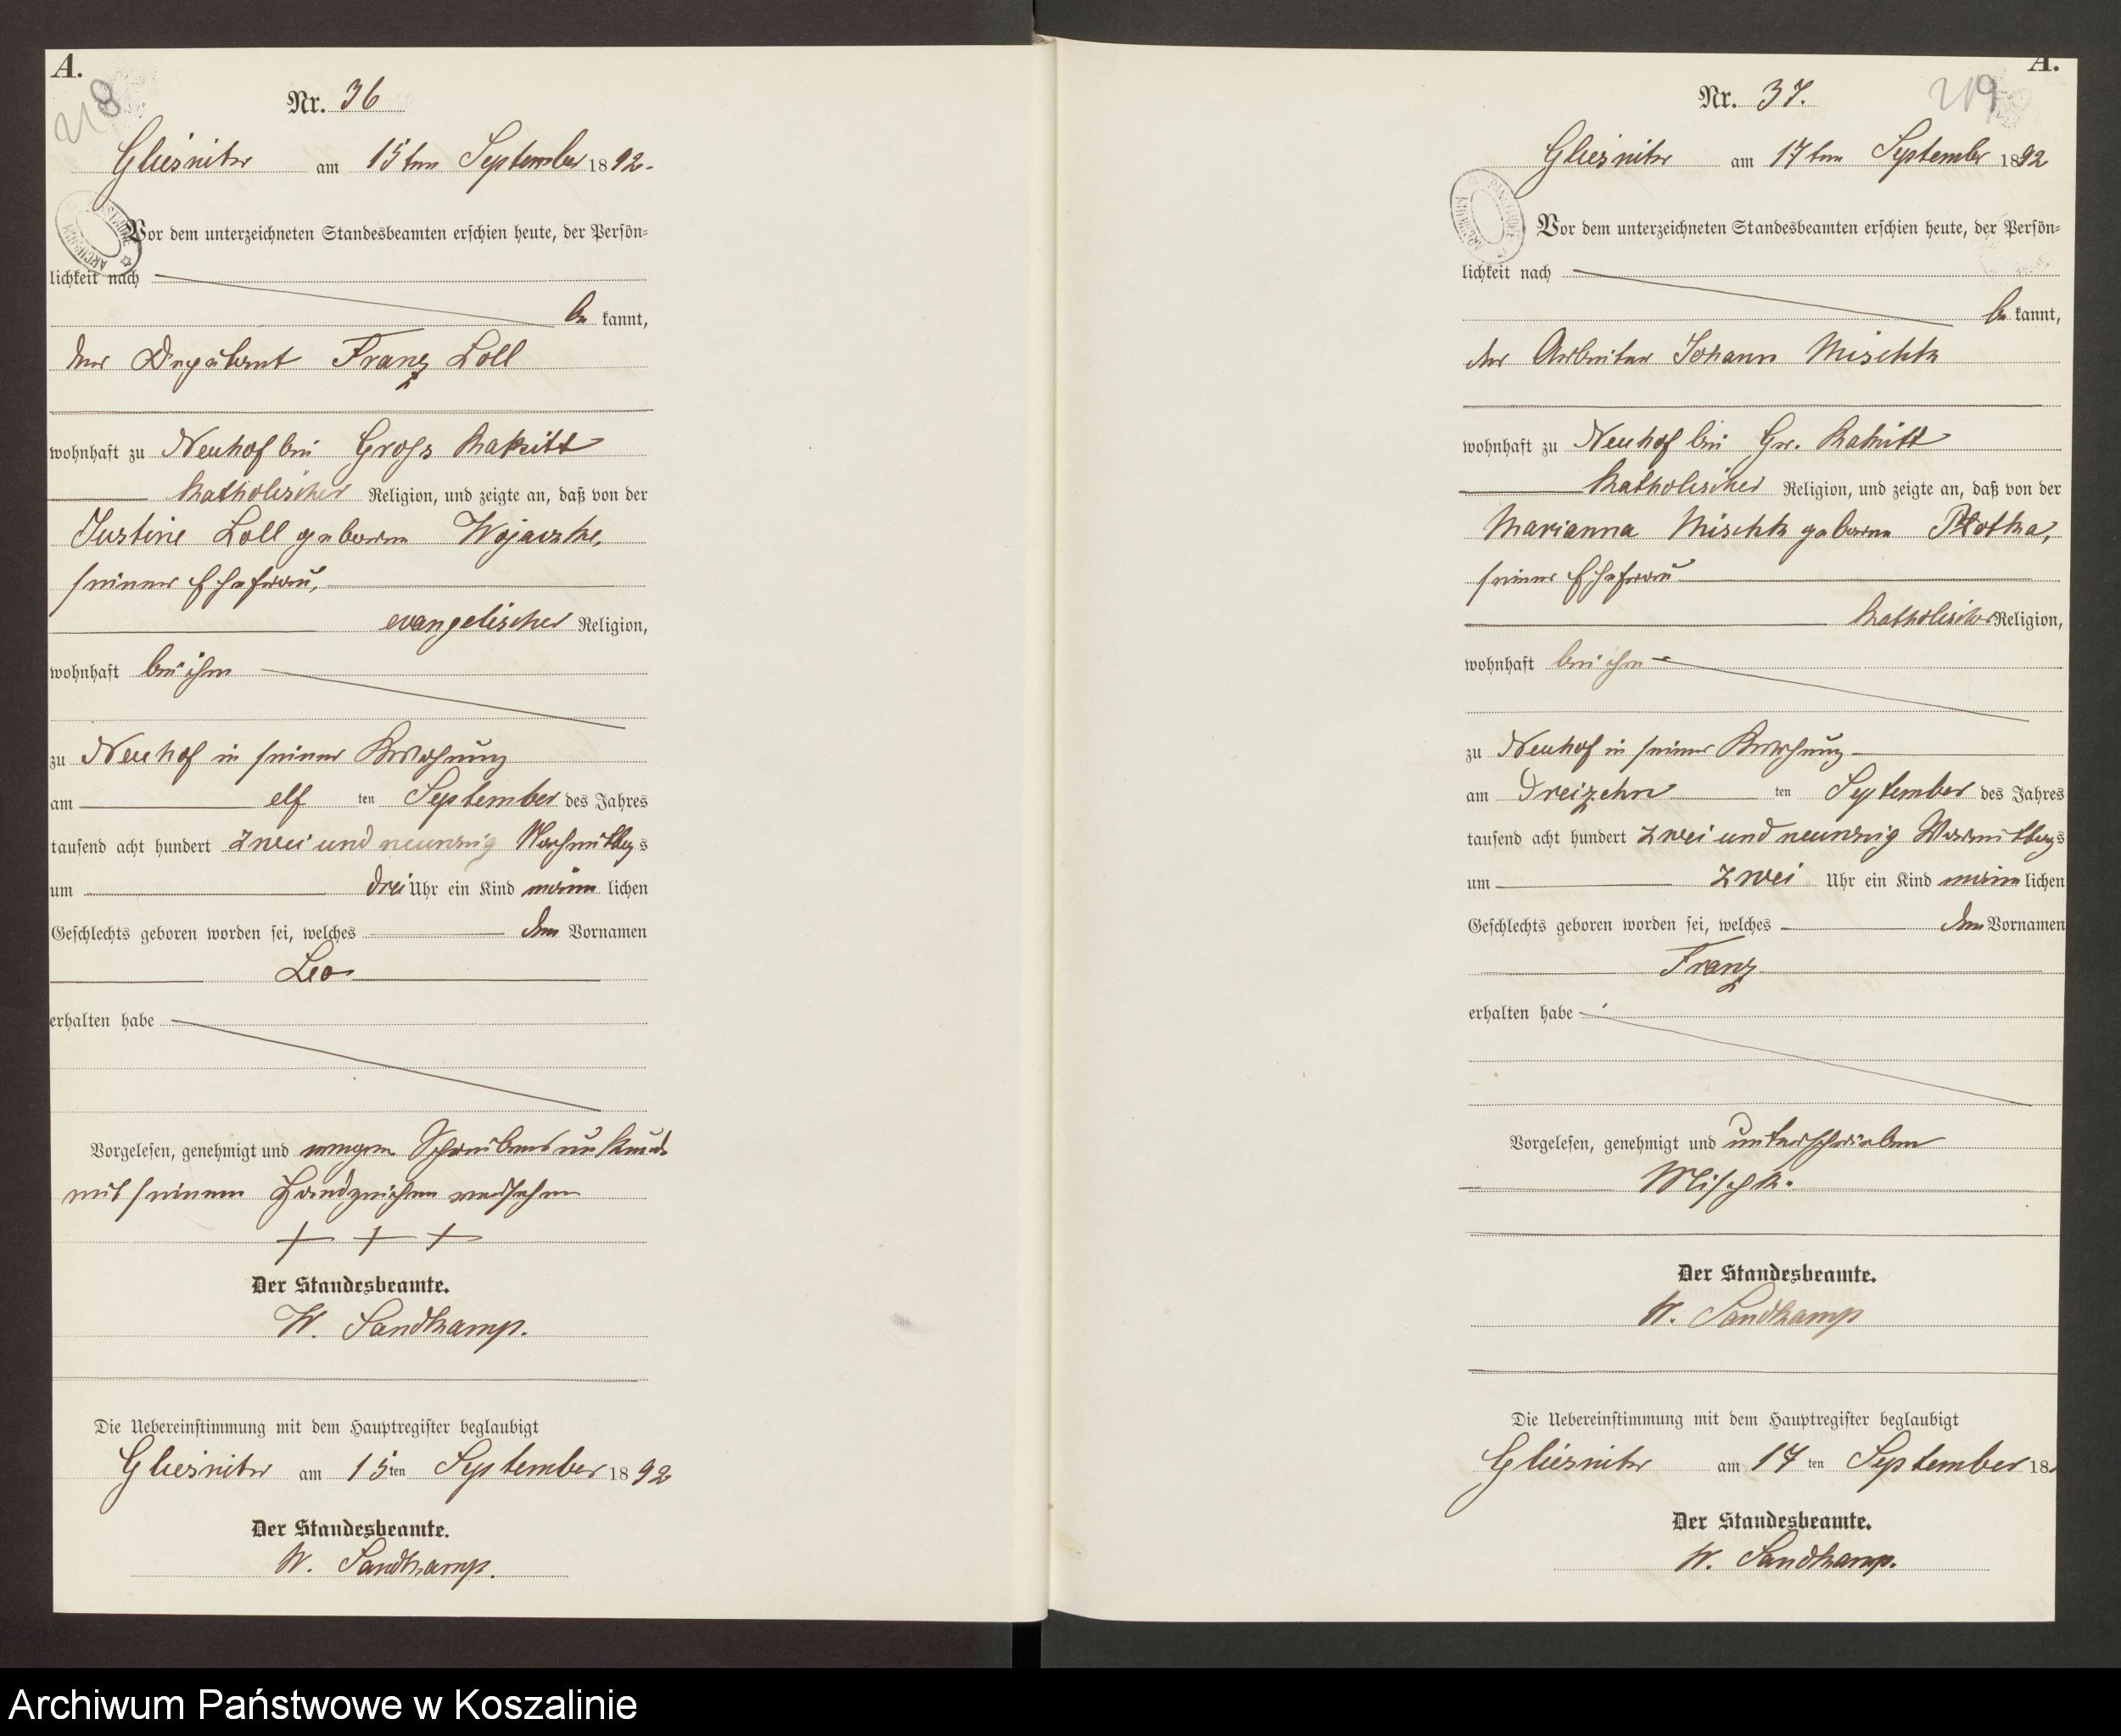 A.
218
Nr. 36
Gliesnitz am 15ten September 1892.
Vor dem unterzeichneten Standesbeamten erschien heute, der Persön-
lichkeit nach
be kannt,
der Deputant Franz Loll
wohnhaft zu Neuhof bei Gross Rakitt
katholischer Religion, und zeigte an, daß von der
Justine Loll geborene
seiner Ehefrau,
evangelischer Religion,
wohnhaft bei ihm
zu Neuhof in seiner Behausung
am elf ten September des Jahres
tausend acht hundert zwei und neunzig Nachmittags
um drei Uhr ein Kind männ lichen
Geschlechts geboren worden sei, welches den Vornamen
Leo
erhalten habe
Vorgelesen, genehmigt und wegen Schreibensunkunde
mit seinem Handzeichen versehen
+ + +
Der Standesbeamte.
W. Sandkamp.
Die Uebereinstimmung mit dem Hauptregister beglaubigt
Gliesnitz am 15ten September 1892
Der Standesbeamte.
W. Sandkamp.
A.
219
Nr. 37.
Gliesnitz am 17ten September 1892
Vor dem unterzeichneten Standesbeamten erschien heute, der Persön-
lichkeit nach
be kannt,
der Arbeiter Johann Mischk
wohnhaft zu Neuhof bei Gr. Rakitt
katholischer Religion, und zeigte an, daß von der
Marianna Mischk geborene Plotka,
seiner Ehefrau
katholischer Religion,
wohnhaft bei ihm
zu Neuhof in seiner Behausung
am Dreizehn ten September des Jahres
tausend acht hundert zwei und neunzig Vormittags
um zwei Uhr ein Kind männ lichen
Geschlechts geboren worden sei, welches den Vornamen
Franz
erhalten habe
Vorgelesen, genehmigt und unterschrieben
Mischk.
Der Standesbeamte.
W. Sandkamp
Die Uebereinstimmung mit dem Hauptregister beglaubigt
Gliesnitz am 17 ten September 18
Der Standesbeamte.
W. Sandkamp.
Archiwum Państwowe w Koszalinie